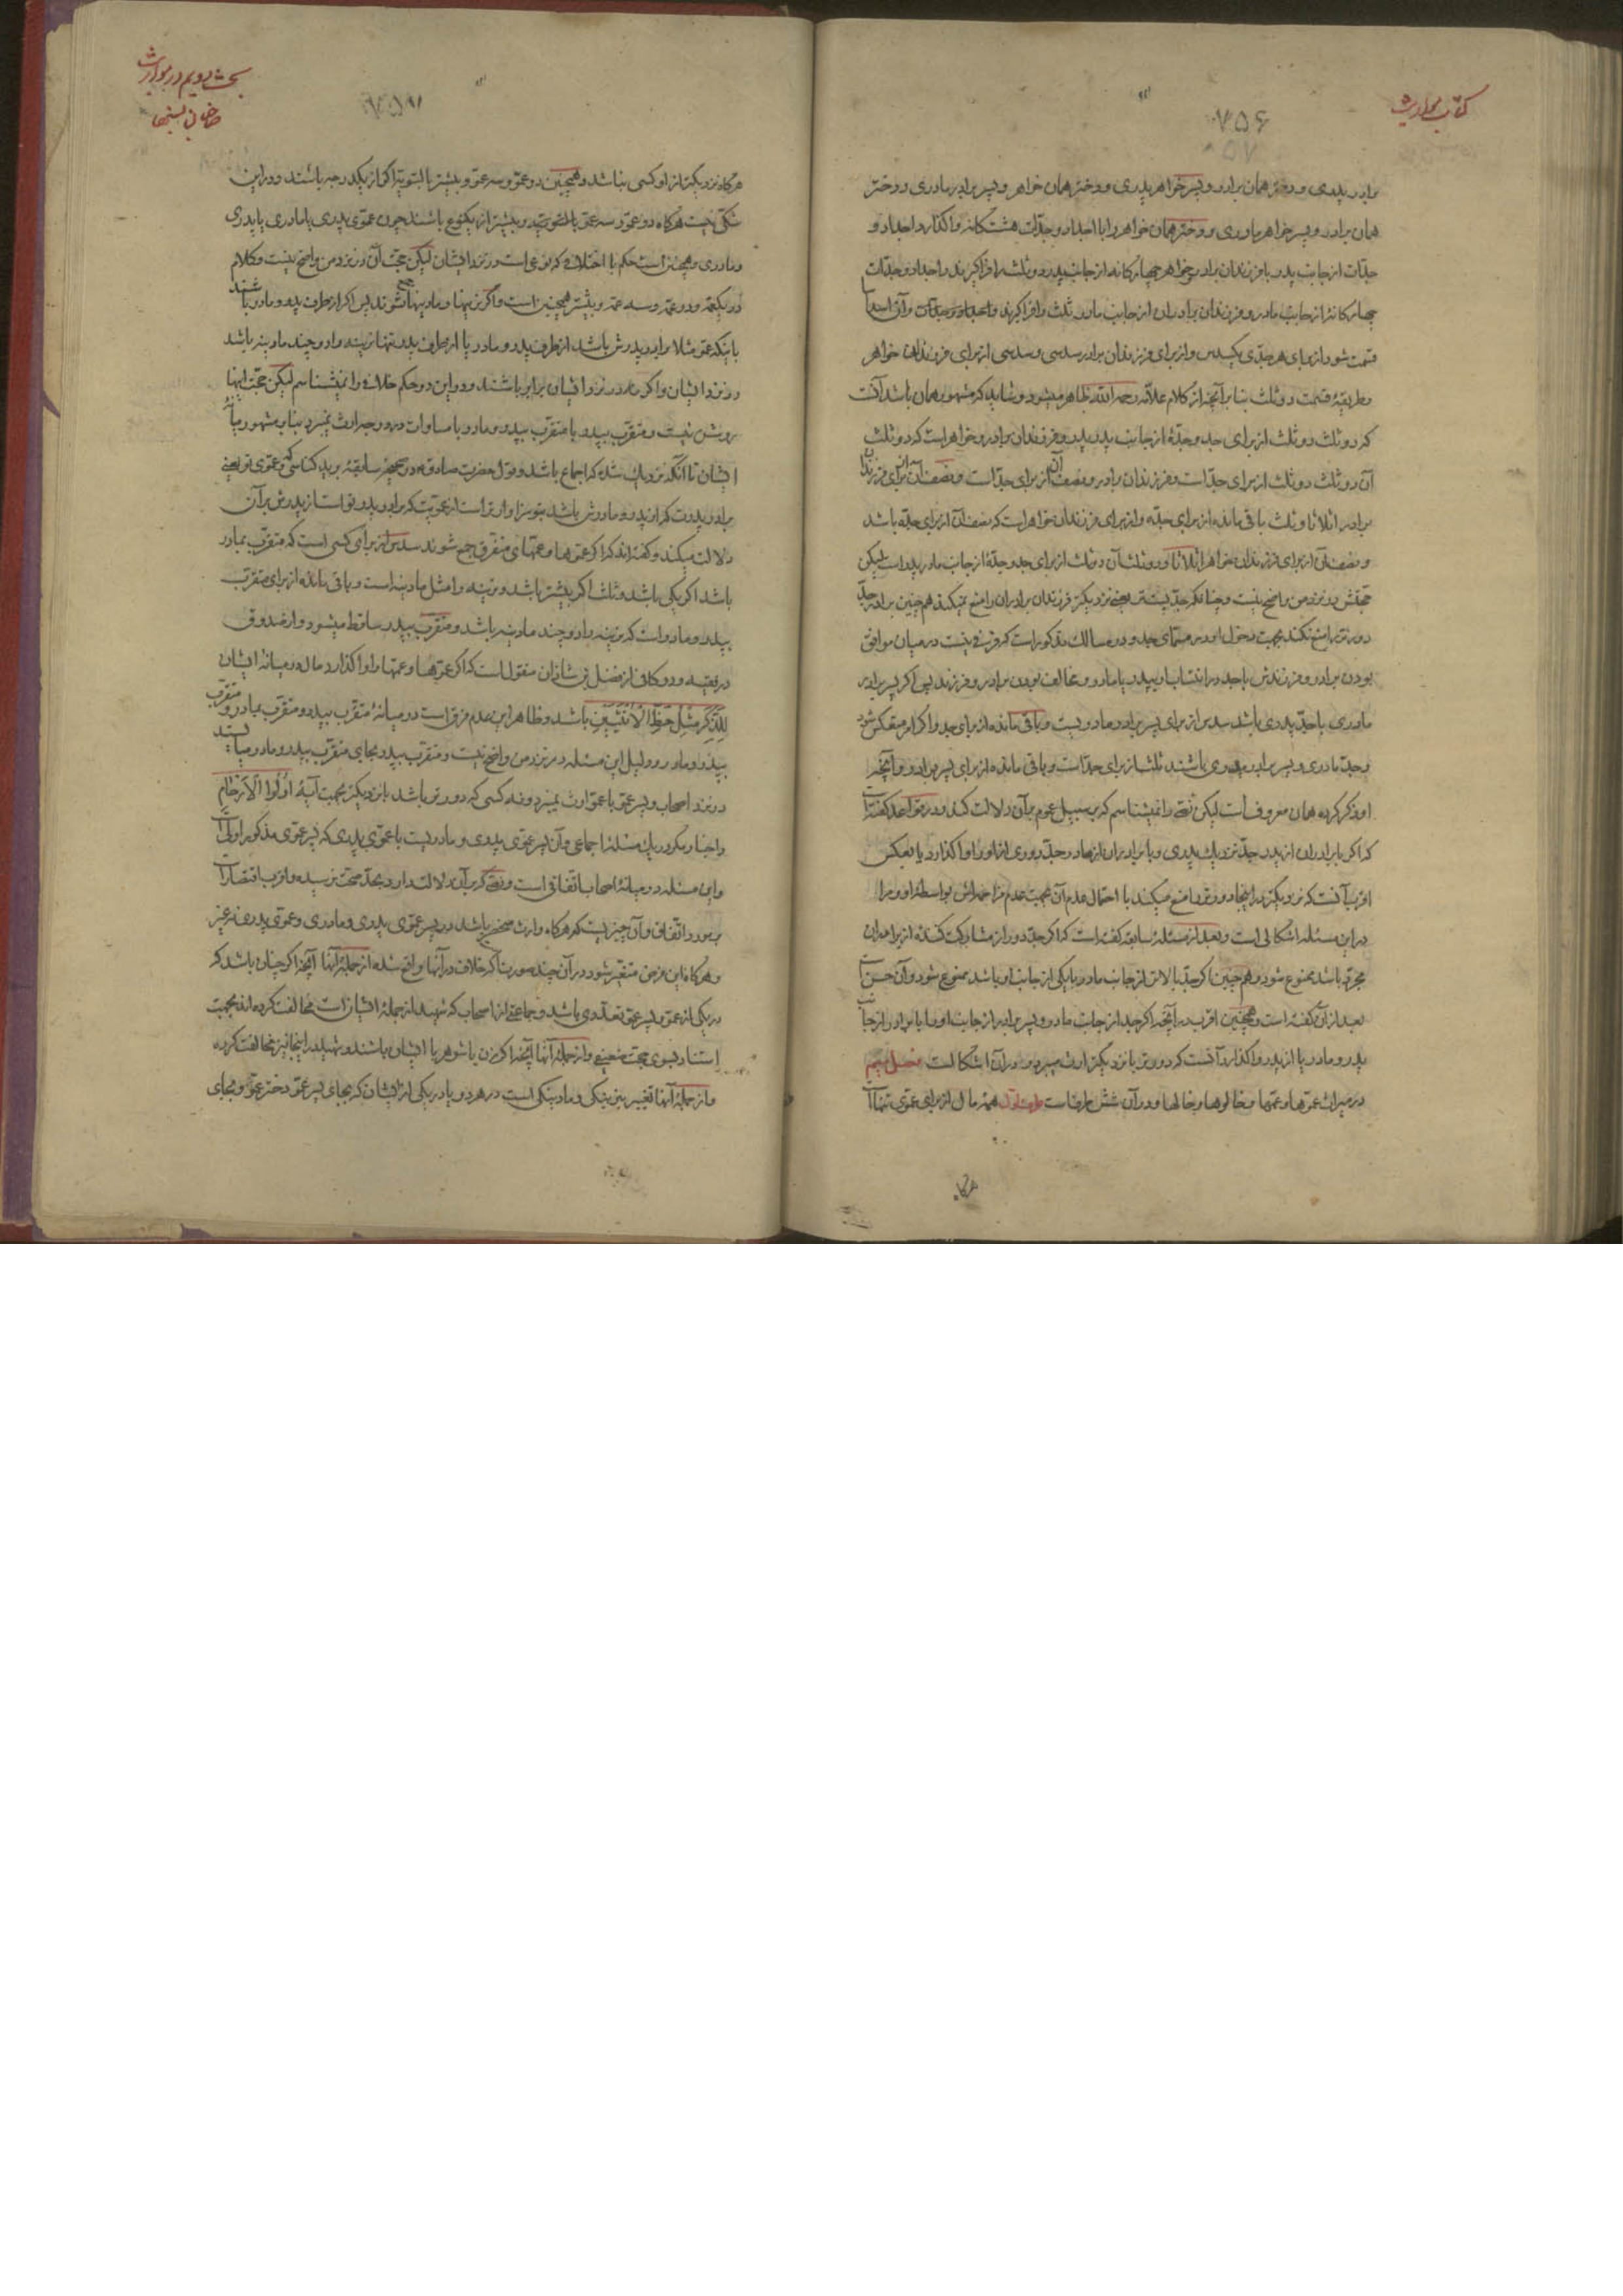 کتاب مواریث
۷۵۶
برادر پدری و دختر همان برادر و پسر خواهر پدری و دختر همان خواهر و پسر برادر مادری و دختر
همان برادر و پسر خواهر مادری و دختر همان خواهر را با اجداد و جدّات هشت‌کانه واگذارد اجداد و
جدّات از جانب پدر با فرزندان برادر و خواهر چهارکانه از جانب پدر دو ثلث را فراگیرند و اجداد و جدّات
چهارکانه از جانب مادر و فرزندان برادران از جانب مادر ثلث را فراگیرند
قسمت شود از برای هر جدّی یکسدس و از برای فرزندان برادر سدسی و سدسی از برای فرزندان خواهر
و طریقهٔ قسمت دو ثلث بنا بر آنچه از کلام علّامه رحمه الله ظاهر میشود و شاید که مشهور همان باشد آنست
که دو ثلث دو ثلث از برای جد و جدّهٔ از جانب پدر پدر و فرزندان برادر و خواهر است که دو ثلث
آن دو ثلث دو ثلث از برای جدّ است و فرزندان برادر و نصف آن از برای جدّ است و نصف آن از برای فرزندان
برادر اثلاثا و ثلث باقی مانده از برای جدّه و از برای فرزندان خواهر است که نصف آن از برای جدّه باشد
و نصف آن از برای فرزندان خواهر اثلاثا و دو ثلث آن دو ثلث از برای جد و جدّهٔ از جانب مادر پدر است لیکن
حجّتش در نزد من واضح نیست و چنانکه جدّ پست‌تر یعنی نزدیکتر فرزندان برادران را منع نمیکند همچنین برادر جدّ
دورتر را منع نکند بجهت دخول او در مسمّای جد و در مسالک مذکور است که فرقی نیست در میان موافق
بودن برادر و فرزندش با جد در انتساب بپدر یا مادر و مخالف بودن برادر و فرزند پس اگر پسر برادر
مادری با جدّ پدری باشد سدس از برای پسر برادر مادریست و باقی مانده از برای جد و اگر امر منعکس شود
و جدّ مادری و پسر برادر پدری باشند ثلث از برای جدّ است و باقی مانده از برای پسر برادر و آنچه
او ذکر کرده همان معروف است لیکن نصّی را نمیشناسم که بر سبیل عموم بر آن دلالت کند و در قواعد گفته است
که اگر با برادران از پدر جدّ نزدیک پدری و با برادران از مادر جدّ دوری از او را واگذارد یا بعکس
اقرب آنست که نزدیکتر در اینجا دورتر را منع میکند با احتمال عدم آن بجهت عدم مزاحمتش بواسطه او و مرا
در این مسئله اشکالی است و بعد از مسئلهٔ سابقه گفته است که اگر جدّ دور از مشارکت کننده از برادران
مجرّد باشد ممنوع شود و همچنین اگر جدّ بالاتر از جانب مادر با یکی از جانب او باشد ممنوع شود و آن حسن است
بعد از آن گفته است و همچنین اقرب در آنچه اگر جد از جانب مادر و پسر برادر از جانب او را با برادر از جانب
پدر و مادر یا از پدر واگذارد آنست که دورتر با نزدیکتر ارث میبرد و در آن اشکال است فصل سیّم
در میراث عمّوها و عمّه‌ها و خالوها و خاله‌ها و در آن شش طرف است طرف اوّل همهٔ مال از برای عموی تنها است
هرگاه
بحث دویم در مواریث
صاحبان نسبها
هرگاه نزدیکتر از او کسی نباشد و همچنین دو عمّ و سه عمّ و بیشتر بالسّویّه اگر از یکدرجه باشند و در این
شکّی نیست هرگاه دو عمو و سه عمو بیشتر از یکنوع باشند چون عموی پدری یا مادری یا پدری
و مادری و همچنین است حکم با اختلاف که نوعی است در نزد ایشان لیکن حجّت آن در نزد من واضح نیست و کلام
در یکعمّه و دو عمّه و سه عمّه و بیشتر همچنین است و اگر نرینها و مادینها جمع شوند پس اگر از طرف پدر و مادر باشند
باینکه عمّ مثلا برادر پدرش باشد از طرف پدر و مادر یا از طرف پدر تنها نرینه را دو چند مادینه باشد
در نزد ایشان و اگر مادر در نزد ایشان برابر باشند و در این دو حکم خلافی را نمیشناسم لیکن حجّت اینها
روشن نیست و متقرّب بپدر با متقرّب بپدر و مادر با مساوات در درجه ارث نمیبرد بنا بر مشهور میانهٔ
ایشان تا آنکه نزدیک شده که اجماع باشد و قول حضرت صادق ع در صحیحهٔ سابقهٔ برید کناسی که و عموی تو یعنی
برادر پدرت که از پدر و مادرش باشد بتو سزاوارتر است از عمویت که برادر پدر تو است از پدرش بر آن
دلالت میکند و گفته‌اند که اگر عموها و عمّهای متفرّق جمع شوند سدس از برای کسی است که متقرّب بمادر
باشد اگر یکی باشد و ثلث اگر بیشتر باشد و نرینه را مثل مادینه است و باقی مانده از برای متقرّب
بپدر و مادر است که نرینه را دو چند مادینه باشد و متقرّب بپدر ساقط میشود و از صدوق
در فقیه و در کافی از فضل بن شاذان منقول است که اگر عموها و عمّها را واگذارد مال در میانهٔ ایشان
لِلذَّکَرِ مِثْلُ حَظِّ الْأُنْثَیَیْنِ باشد و ظاهر این عدم فرق است در میانهٔ متقرّب بپدر و متقرّب بمادر و متقرّب
بپدر و مادر و دلیل این مسئله در نزد من واضح نیست و متقرّب بپدر بجای متقرّب بپدر و مادر میایستد
در نزد اصحاب و پسر عمّ با عمّ ارث نمیبرد و نه کسی که دورتر باشد با نزدیکتر بجهت آیهٔ اُولُوا الْأَرْحَامِ
و اخبار مگر در یک مسئلهٔ اجماعی و آن پسر عموی پدری و مادریست با عموی پدری که پسر عموی مذکور اولی است
و این مسئله در میانهٔ اصحاب اتّفاقی است و نصّی که بر آن دلالت دارد بحدّ صحّت نرسیده و اقرب اقتصار است
بر مورد اتّفاق و آن چیزیست که هرگاه وارث منحصر باشد در پسر عموی پدری و مادری و عموی پدری نه غیر
و هرگاه این فرض متغیّر شود در آن چند صورت که خلاف در آنها واقع شده از جملهٔ آنها آنچه اگر چنان باشد که
در یکی از عمّ و پسر عمّ تعدّدی باشد و جماعتی از اصحاب که شهید از جملهٔ ایشان است مخالفت کرده‌اند بجهت
استناد بسوی حجّت ضعیفی و از جملهٔ آنها آنچه اگر زن یا شوهر با ایشان باشند و شهید در اینجا نیز مخالفت کرده
و از جملهٔ آنها تغییر نرینگی و مادینگی است در هر دو یا در یکی از ایشان که بجای پسر عمّ دختر عمّ و بجای